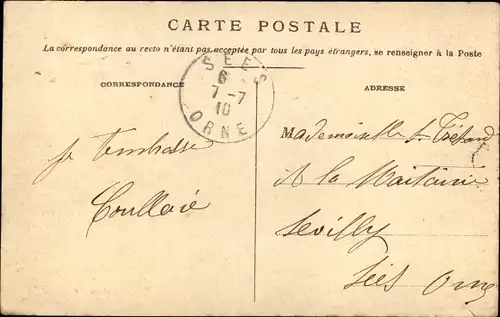 CARTE POSTALE
La correspondance au recto n'étant pas acceptée par tous les pays étrangers, se renseigner à la Poste
CORRESPONDANCE
SEES
6
7-7
10
ORNE
ADRESSE
je t'embrasse
Mademoiselle
A la
Sevilly
Sées Orne